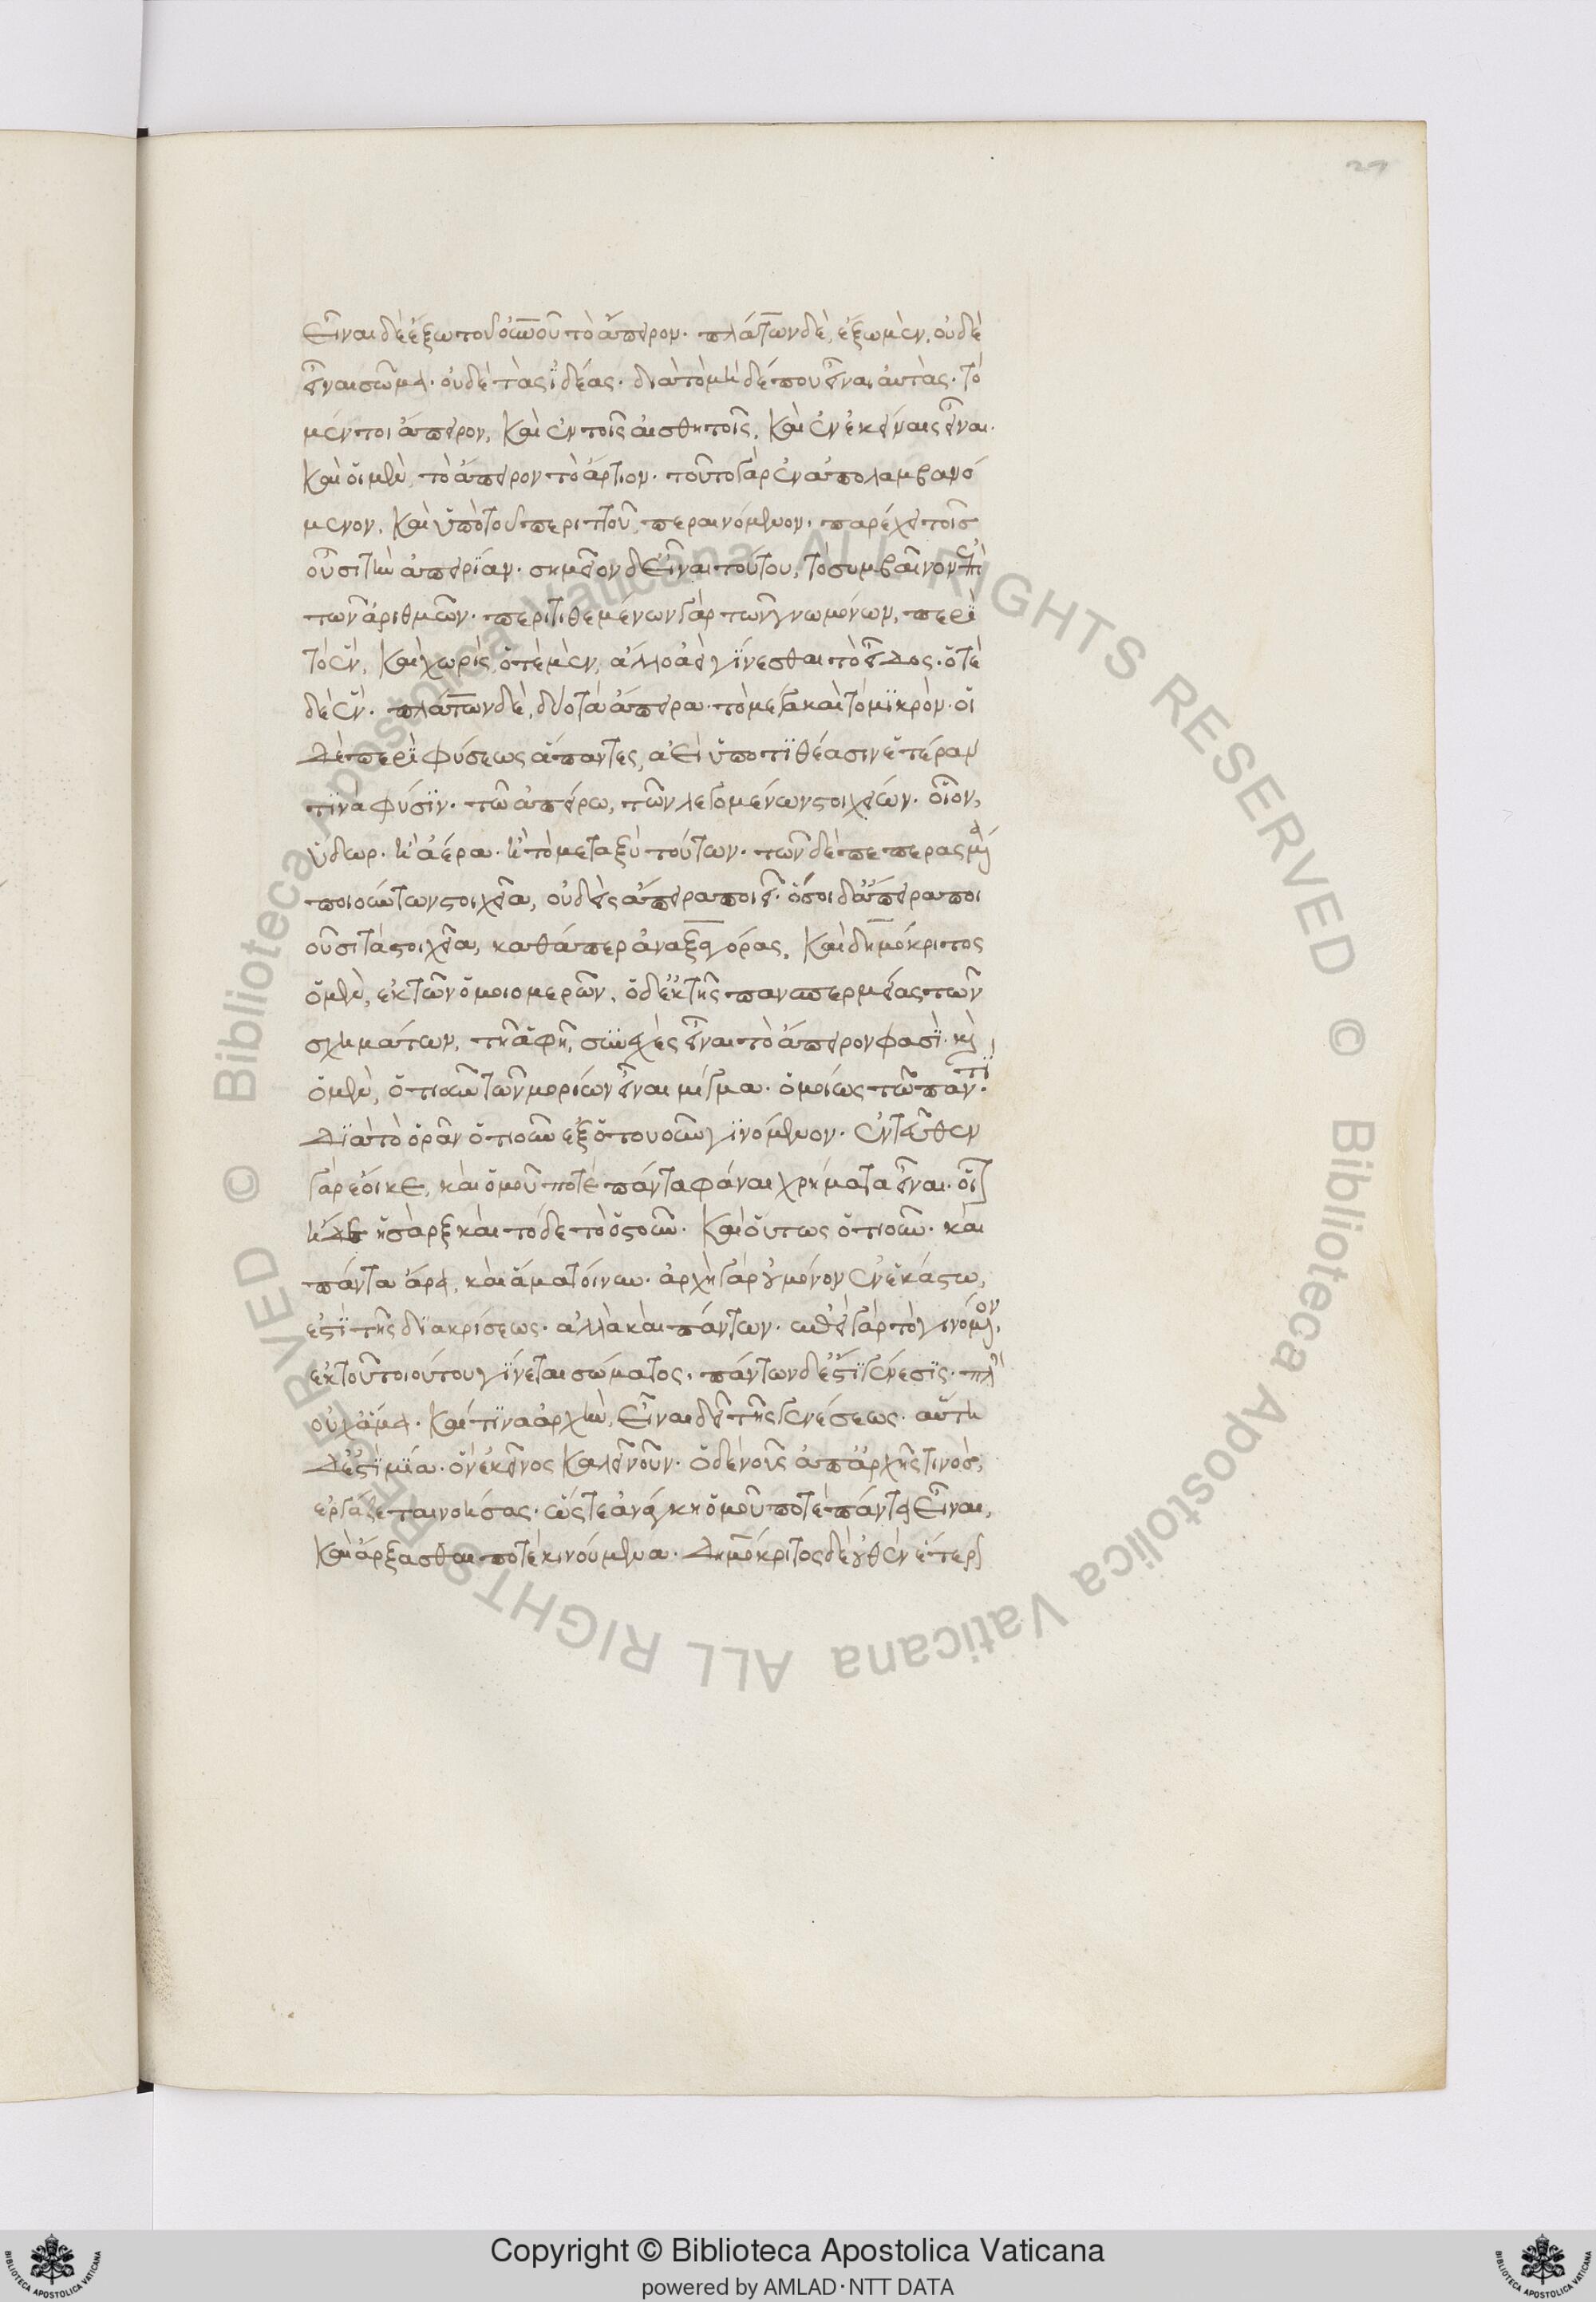 27
εἶναι δὲ ἔξω τοῦ οὐρανοῦ τὸ ἄπειρον· πλάτων δὲ, ἔξω μὲν, οὐδὲ
εἶναι σῶμα· οὐδὲ τὰς ϊδέας· διὰ τὸ μὴ δέ που εἶναι αὐτὰς· τὸ
μέντοι ἄπειρον, καὶ ἐν τοῖς αἰσθητοῖς, καὶ ἐν ἐκείναις εἶναι.
καὶ οἱ μὲν, τὸ ἄπειρον τὸ ἄρτιον· τοῦτο γὰρ ἐναπολαμβανό
μενον, καὶ ὑπὸ τοῦ περιττοῦ περαινόμενον, παρέχει τοῖσ
οὖσι τὴν ἀπειρΐαν· σημεῖον δ εἶναι τούτου, τὸ συμβαῖνον ἐπὶ
τῶν ἀριθμῶν· περιτιθεμένων γὰρ τῶν γνωμόνων, περὶ
τὸ ἓν, καὶ χωρὶς, ὁτὲ μὲν, ἄλλο ἀεὶ γΐνεσθαι τὸ εἶδος· ὁτὲ
δὲ ἓν· πλάτων δὲ, δύο τὰ ἄπειρα· τὸ μέγα καὶ τὸ μϊκρὸν· οἱ
δὲ περὶ φύσεως ἅπαντες, ἀεὶ ὑποτϊθέασιν ἑτέραν
τϊνὰ φύσϊν· τῶ ἀπείρω, τῶν λεγομένων στοιχείων· οἷον,
ὕδωρ· ἢ ἀέρα· ἢ τὸ μεταξὺ τούτων· τῶν δὲ πεπερασμένα
ποιούντων στοιχεῖα, οὐδεὶς ἄπειρα ποιεῖ· ὅσοι δ ἄπειρα ποι
οῦσι τὰ στοιχεῖα, καθάπερ ἀναξαγόρας, καὶ δημόκριτος
ὁ μὲν, ἐκ τῶν ὁμοιομερῶν, ὁ δ ἐκ τῆς πανσπερμίας τῶν
σχημάτων, τῇ ἁφῇ, συνεχὲς εἶναι τὸ ἄπειρον φασὶ· καὶ
ὁ μὲν, ὁτιοῦν τῶν μορίων εἶναι μίγμα· ὁμοίως τῶ παντΐ·
δϊὰ τὸ ὁρᾶν ὁτιοῦν ἐξ ὁτουοῦν γϊνόμενον· ἐντεῦθεν
γὰρ ἔοικε, καὶ ὁμοῦ ποτὲ πάντα φάναι χρήματα εἶναι· οἷον
ἥδε ἡ σὰρξ καὶ τόδε τὸ ὀστοῦν· καὶ οὕτως ὁτιοῦν· καὶ
πάντα ἄρα, καὶ ἅμα τοίνυν· ἀρχὴ γὰρ οὐ μόνον ἐν ἑκάστω,
ἐστὶ τῆς δϊακρίσεως· ἀλλὰ καὶ πάντων· ἐπεὶ γὰρ τὸ γινόμενον,
ἐκ τοῦ τοιούτου γΐνεται σώματος, πάντων δ ἔστϊ γένεσϊς· πλὴν
οὐχ ἅμα· καί τϊνα ἀρχὴν, εἶναι δεῖ τῆς γενέσεως· αὕτη
δ ἐστὶ μΐα· ὃν ἐκεῖνος καλεῖ νοῦν· ὁ δὲ νοῦς ἀπ ἀρχῆς τινὸσ,
ἐργάζεται νοήσας· ὥστε ἀνάγκη ὁμοῦ ποτὲ πάντα εἶναι,
καὶ ἄρξασθαι ποτὲ κινούμενα· δημόκριτος δ οὐθὲν ἕτερον